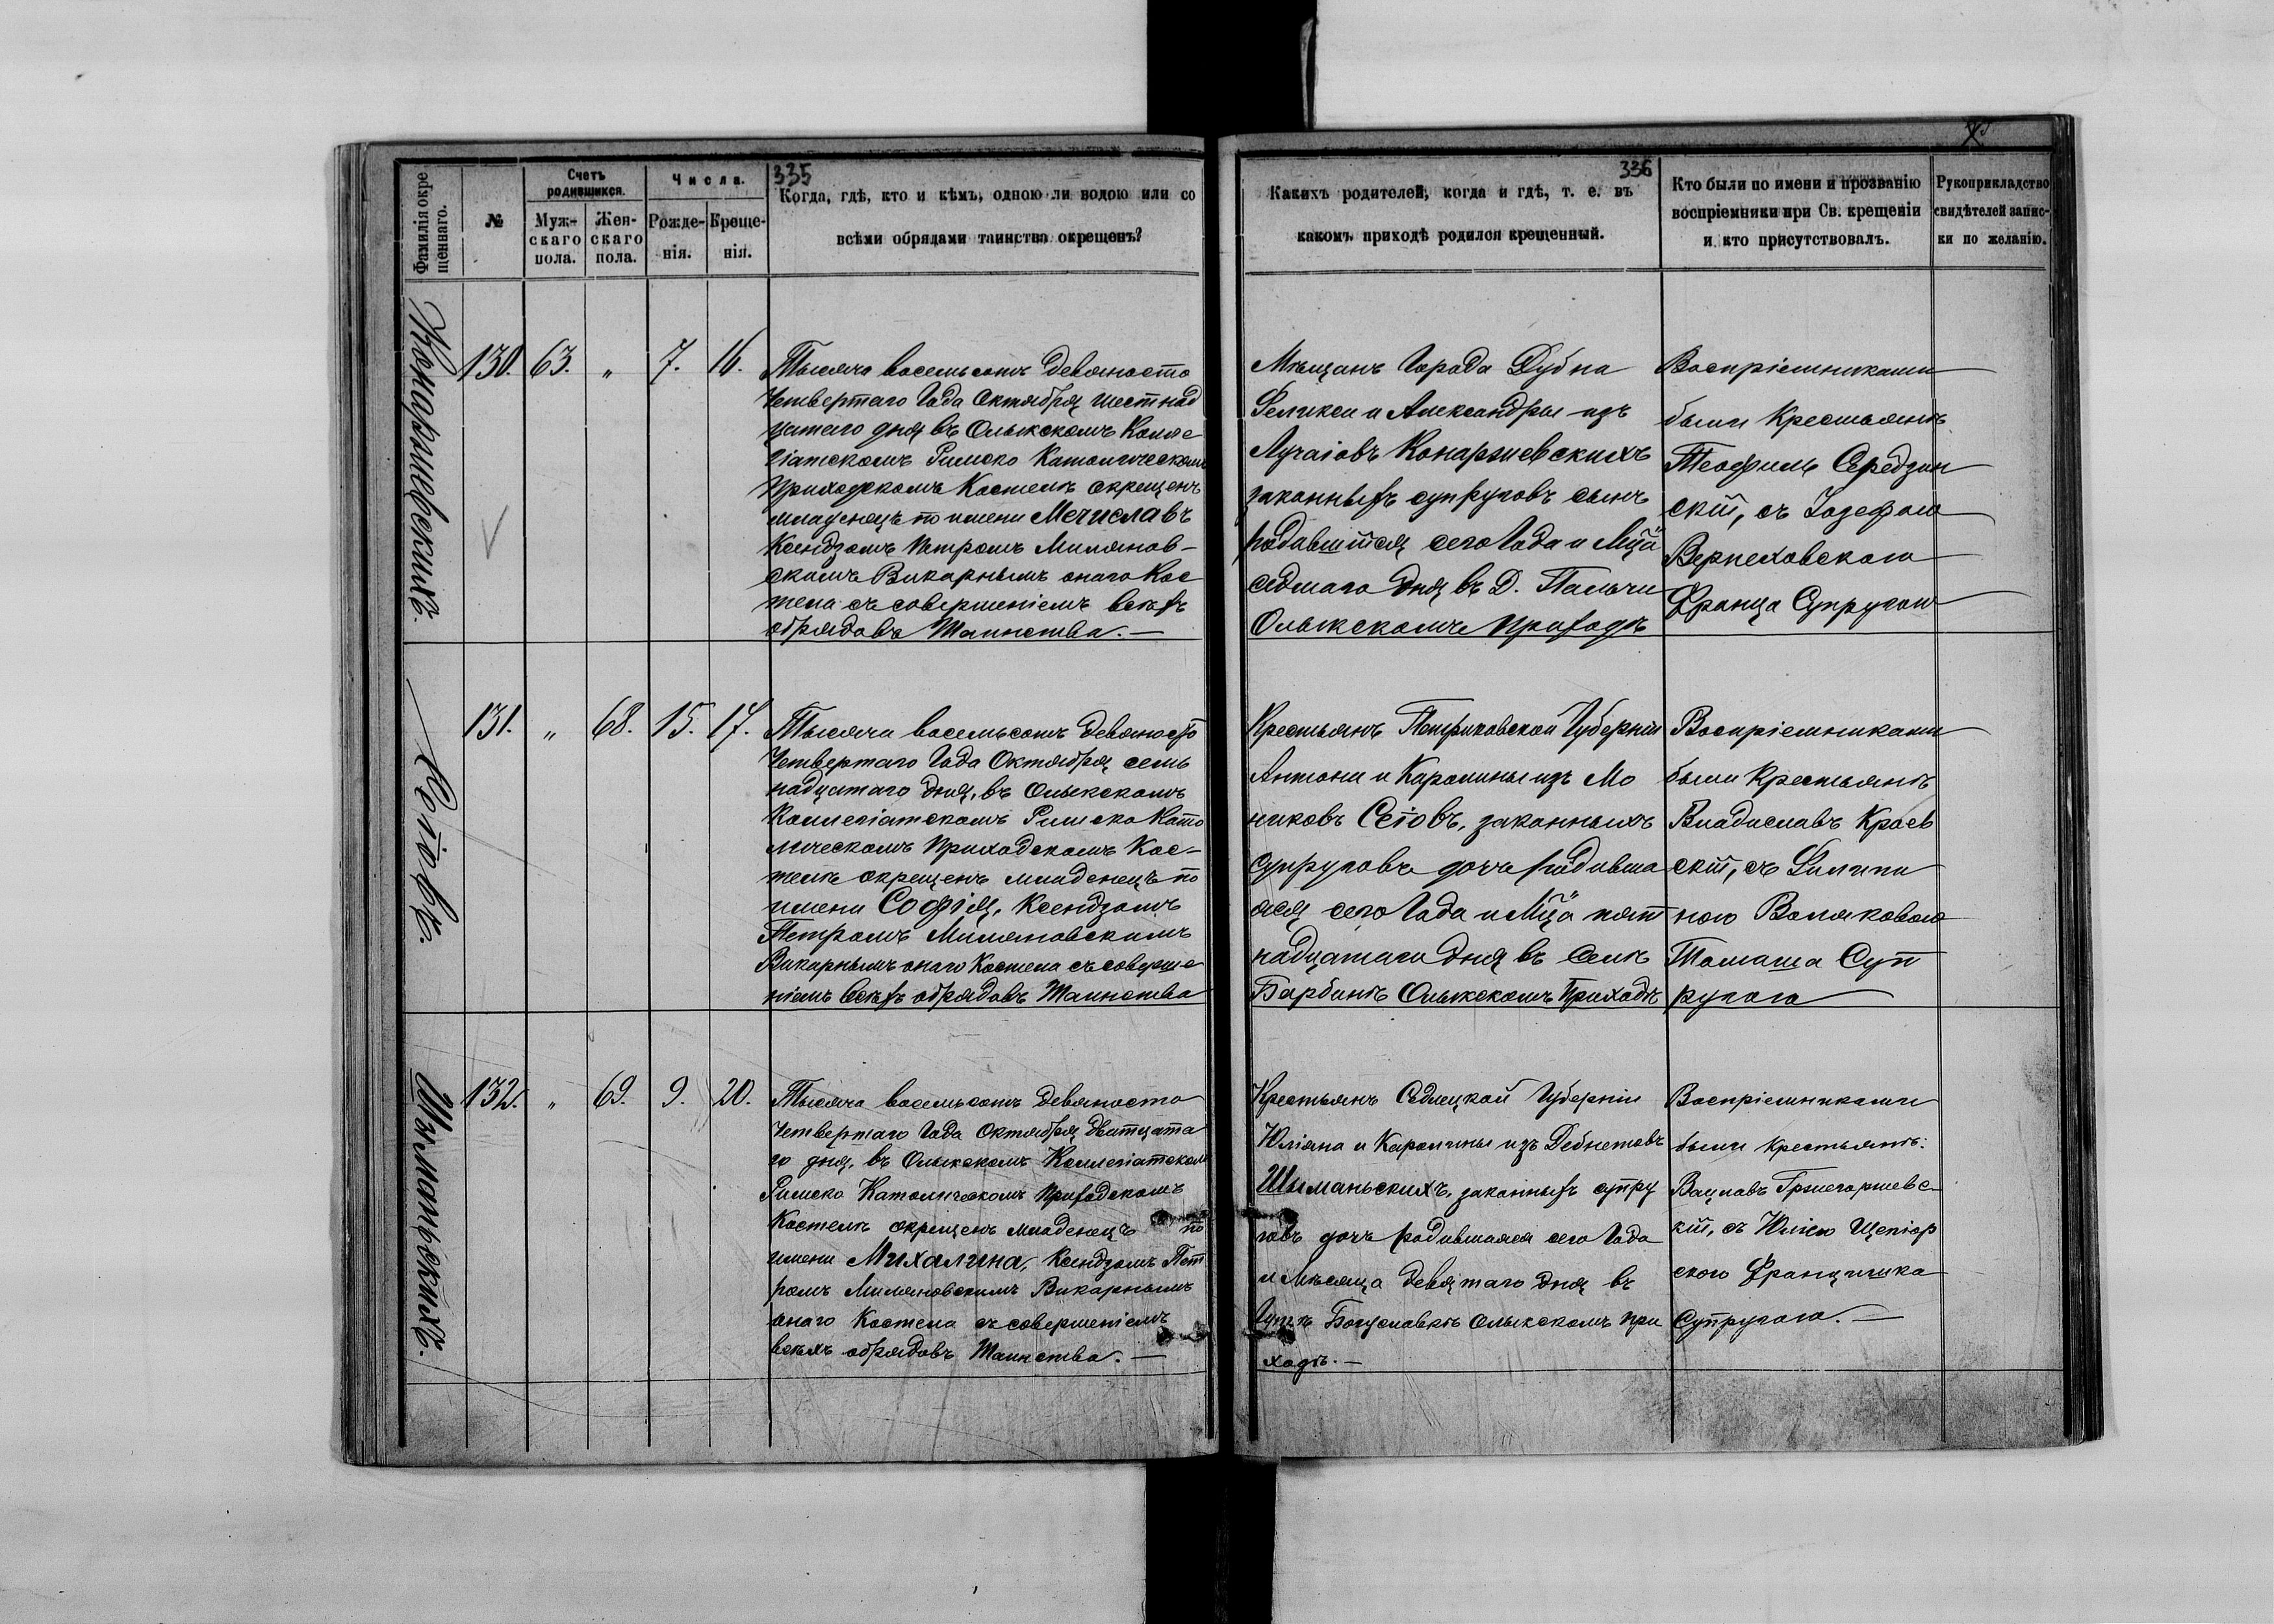 335
Фамилія окре
щеннаго.
№
Счетъ
родившихся.
Муж-
скаго
пола.
Жен-
скаго
пола.
Числа.
Рожде-
нія.
Креще-
нія.
Когда, гдѣ, кто и кѣмъ, одною ли водою или со
всѣми обрядами таинства окрещенъ?
Конаржевскихъ.
130. 63. „ 7. 16.
Тысяча восемьсотъ девяносто
Четвертаго Года Октября шестнад
цатаго дня въ Олыкскомъ Колле
гіатскомъ Римско Католическомъ
Приходскомъ Костелѣ окрещенъ
младенецъ по имени Мечиславъ
Ксендзомъ Петромъ Милянов-
скимъ Викарнымъ онаго Кос
тела съ совершеніемъ всѣхъ
обрядовъ Таинства.—
Сеіовъ.
131. „ 68. 15. 17.
Тысяча восемьсотъ девяносто
Четвертаго Года Октября семь
надцатаго дня, въ Олыкскомъ
Коллегіатскомъ Римско Като
лическомъ Приходскомъ Кос-
телѣ окрещенъ младенецъ по
имени Софія, Ксендзомъ
Петромъ Миляновскимъ
Викарнымъ онаго Костела съ соверше
ніемъ всѣхъ обрядовъ Таинства
Шыманьскихъ.
132. „ 69. 9. 20.
Тысяча восемьсотъ девяносто
Четвертаго Года Октября дватцата
го дня, въ Олыкскомъ Коллегіатскомъ
Римско Католическомъ Приходскомъ
Костелѣ окрещенъ младенецъ по
имени Михалина, Ксендзомъ Пет
ромъ Миляновскимъ Викарнымъ
онаго Костела съ совершеніемъ
всѣхъ обрядовъ Таинства.—
336
Какихъ родителей, когда и гдѣ, т. е. въ
какомъ приходѣ родился крещенный.
Кто были по имени и прозванію
воспріемники при Св. крещеніи
и кто присутствовалъ.
Рукоприкладство
свидѣтелей запис-
ки по желанію.
Мѣщанъ Города Дубна
Феликса и Александры изъ
Лучаіовъ Конаржевскихъ
законныхъ супруговъ сынъ
родившійся сего Года и Мца
седмаго дня въ Д. Пальчи
Олыкскомъ Приходѣ
Воспріемниками
были Крестьянѣ
Теофиль Середзин
скій, съ Іозефою
Верпеховскою
Франца Супругою
Крестьянъ Петриковской Губерніи
Антони и Каролины изъ Мо
никовъ Сеіовъ, законныхъ
супруговъ дочь родивша
яся сего Года и Мца пят
надцатаго дня въ Селѣ
Барбинѣ Олыкскомъ Приходѣ
Воспріемниками
были Крестьянѣ
Владиславъ Краев
скій, съ Филипи
ною Волякового
Томаша Суп
ругою
Крестьянъ Седлецкой Губерніи
Юліяна и Каролины изъ Дебнетовъ
Шыманьскихъ, законныхъ супру
говъ дочь родившаяся сего Года
и Мѣсяца девятаго дня въ
Гутѣ Богуславкѣ Олыкскомъ При
ходѣ.—
Воспріемниками
были крестьянѣ:
Вацлавъ Гржегоржевс
кій, съ Юліею Щепіор
скою Францишка
Супругою.—